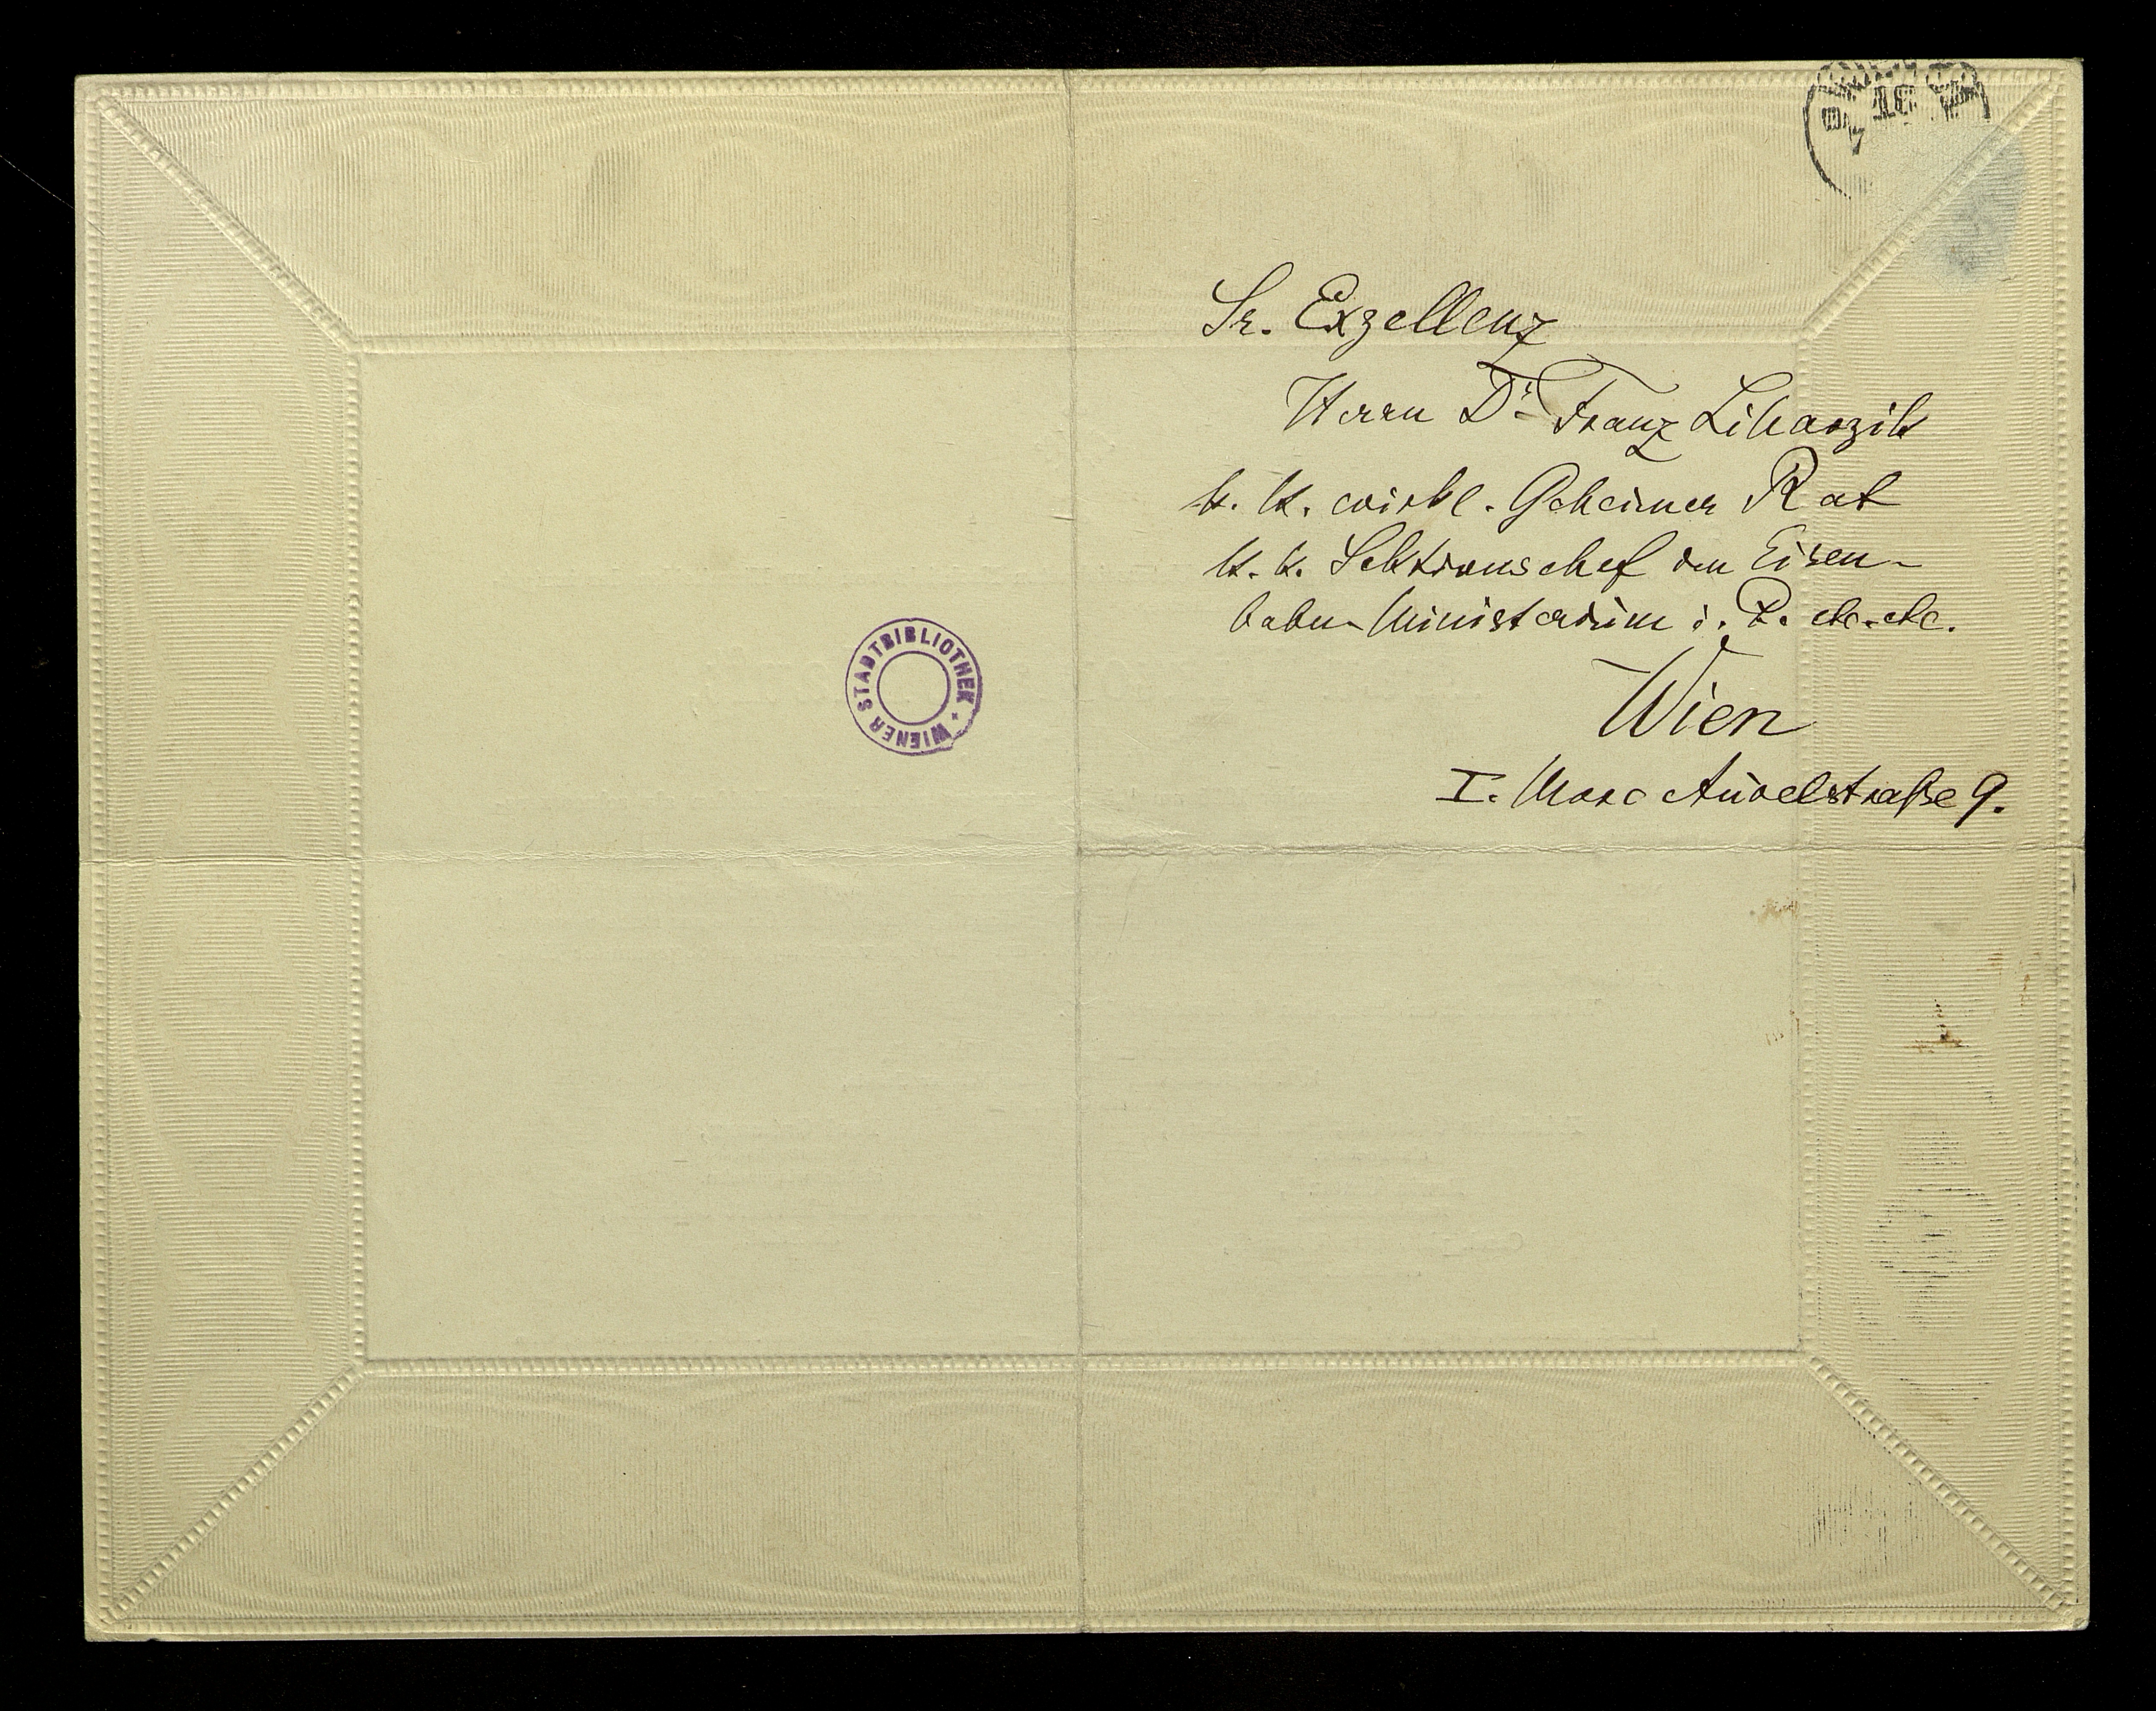 Sr. Exzellenz
Herrn Dr. Franz Liharzik
k. k. wirkl. Geheimer Rat
k. k. Sektionschef im Eisen-
bahn-Ministerium i. P. etc. etc.
Wien
I. Marc Aurelstraße 9.
WIENER STADTBIBLIOTHEK